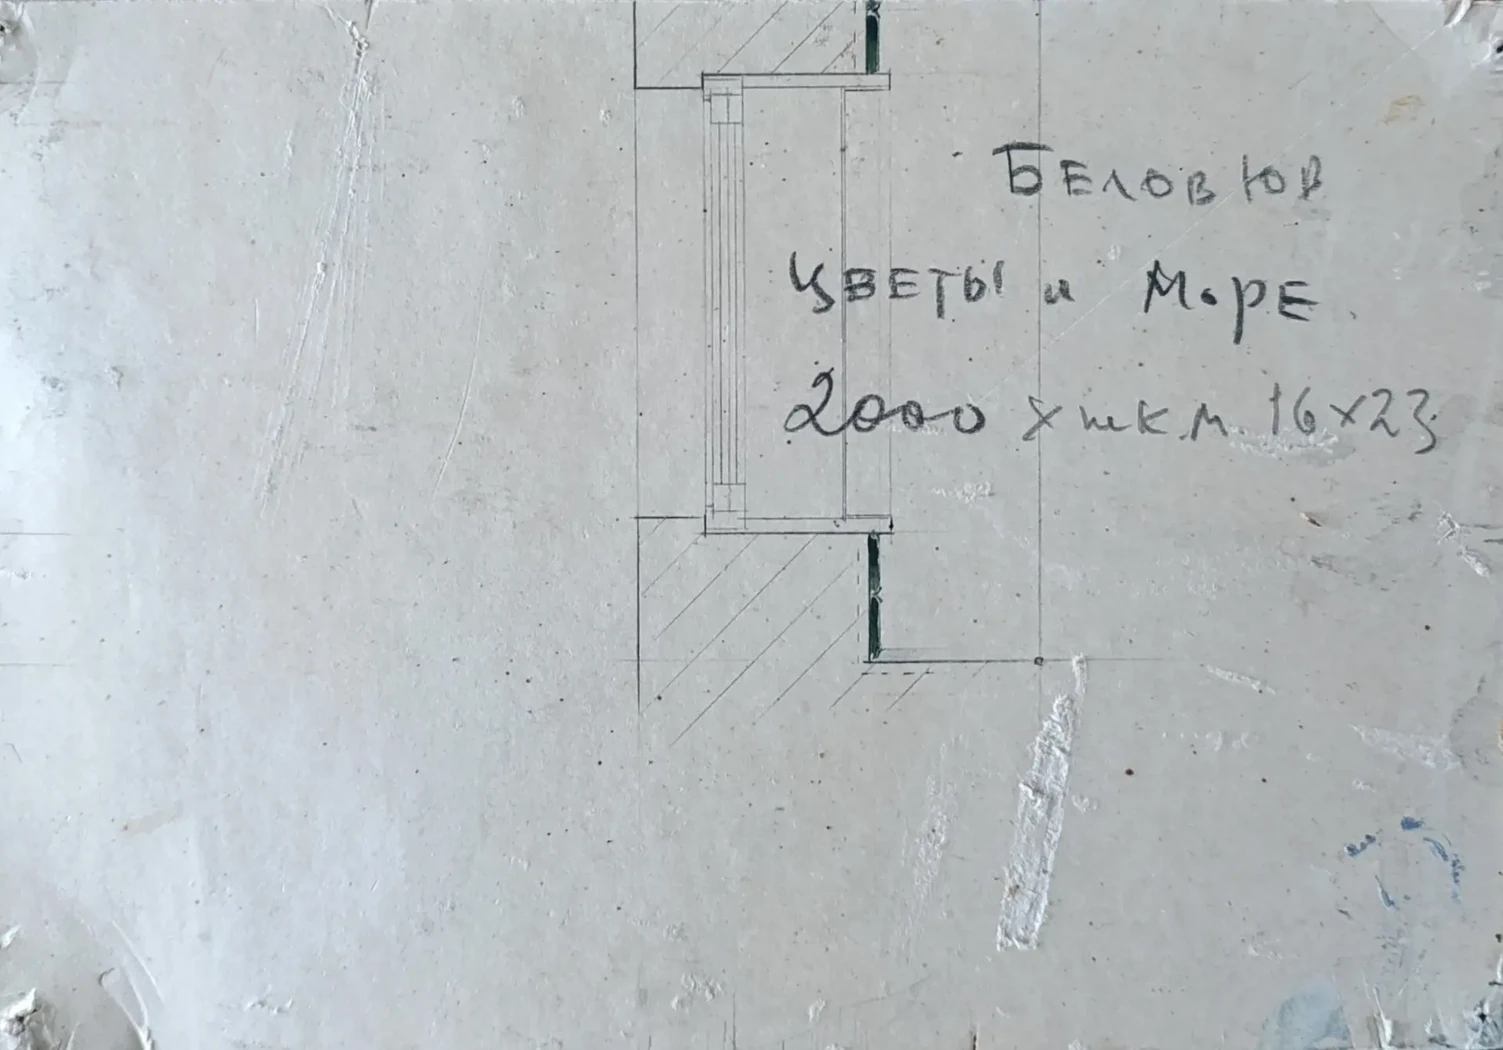 БЕЛОВ ЮВ
ЦВЕТЫ и МОРЕ.
2000 х.м. 16х23